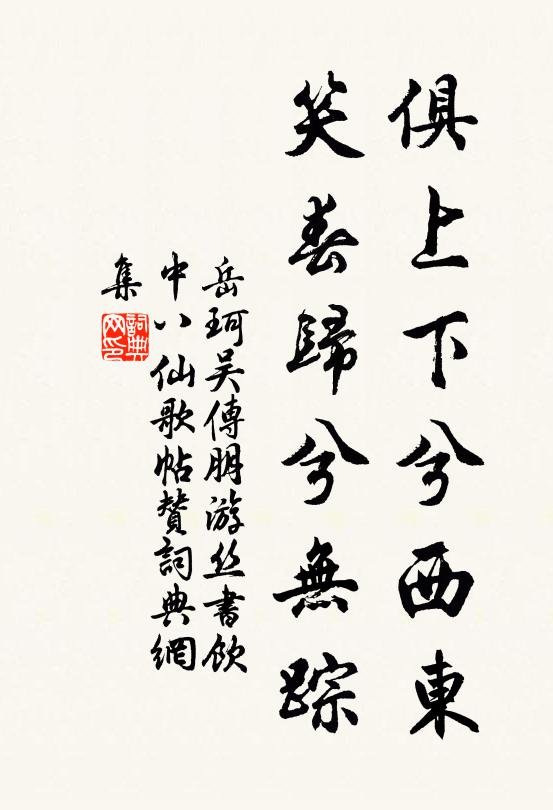 俱上下兮西東
笑春歸兮無踪
岳珂吴傅朋游丝書飲
中八仙歌帖贊詞典網
集
詞典網印